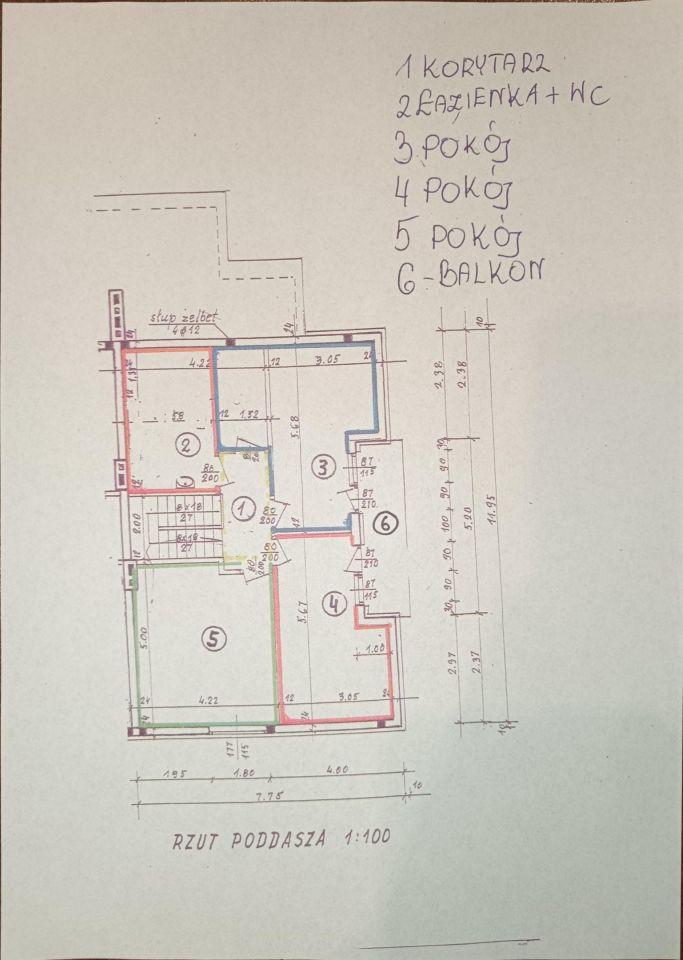 1 KORYTARZ
2 ŁAZIENKA + WC
3 POKÓJ
4 POKÓJ
5 POKÓJ
6 - BALKON
słup żelbet
4Ø12
24
10
24
4.22
12
3.05
24
2.38
2.38
12
58
12
1.32
5.68
2
80
200
3
87
115
87
210
6
1
80
200
8x18
27
8x18
27
2.00
12
80
200
80
200
12
87
210
87
115
4
30
90
90
100
90
90
30
5.20
11.95
5
5.00
5.67
1.00
2.97
2.37
24
4.22
12
3.05
24
24
24
177
115
10
195
1.80
4.00
10
7.75
RZUT PODDASZA 1:100